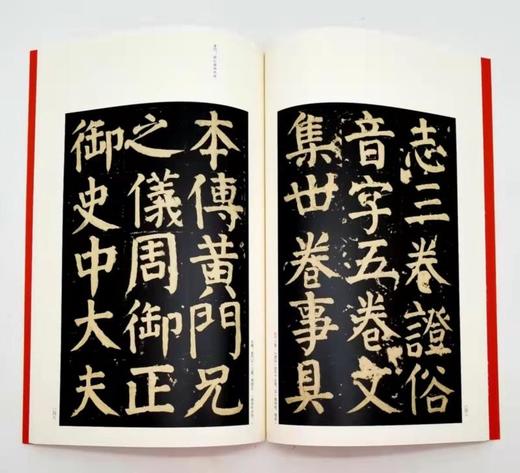 志三卷證俗
音字五卷文
集卅卷事具
本傳黃門兄
之儀周御正
御史中大夫